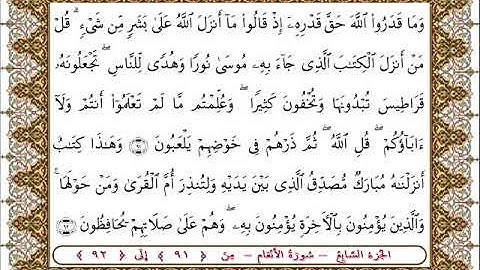 وَمَا قَدَرُوا۟ ٱللَّهَ حَقَّ قَدْرِهِۦٓ إِذْ قَالُوا۟ مَآ أَنزَلَ ٱللَّهُ عَلَىٰ بَشَرٍ مِّن شَىْءٍ ۗ قُلْ
مَنْ أَنزَلَ ٱلْكِتَٰبَ ٱلَّذِى جَآءَ بِهِۦ مُوسَىٰ نُورًا وَهُدًى لِّلنَّاسِ ۖ تَجْعَلُونَهُۥ
قَرَاطِيسَ تُبْدُونَهَا وَتُخْفُونَ كَثِيرًا ۖ وَعُلِّمْتُم مَّا لَمْ تَعْلَمُوٓا۟ أَنتُمْ وَلَآ
ءَابَآؤُكُمْ ۖ قُلِ ٱللَّهُ ۖ ثُمَّ ذَرْهُمْ فِى خَوْضِهِمْ يَلْعَبُونَ ﴿٩١﴾ وَهَٰذَا كِتَٰبٌ
أَنزَلْنَٰهُ مُبَارَكٌ مُّصَدِّقُ ٱلَّذِى بَيْنَ يَدَيْهِ وَلِتُنذِرَ أُمَّ ٱلْقُرَىٰ وَمَنْ حَوْلَهَا ۚ
وَٱلَّذِينَ يُؤْمِنُونَ بِٱلْءَاخِرَةِ يُؤْمِنُونَ بِهِۦ ۖ وَهُمْ عَلَىٰ صَلَاتِهِمْ يُحَافِظُونَ ﴿٩٢﴾
الجزء السابع - سورة الأنعام - من ﴿ ٩١ ﴾ إلى ﴿ ٩٢ ﴾